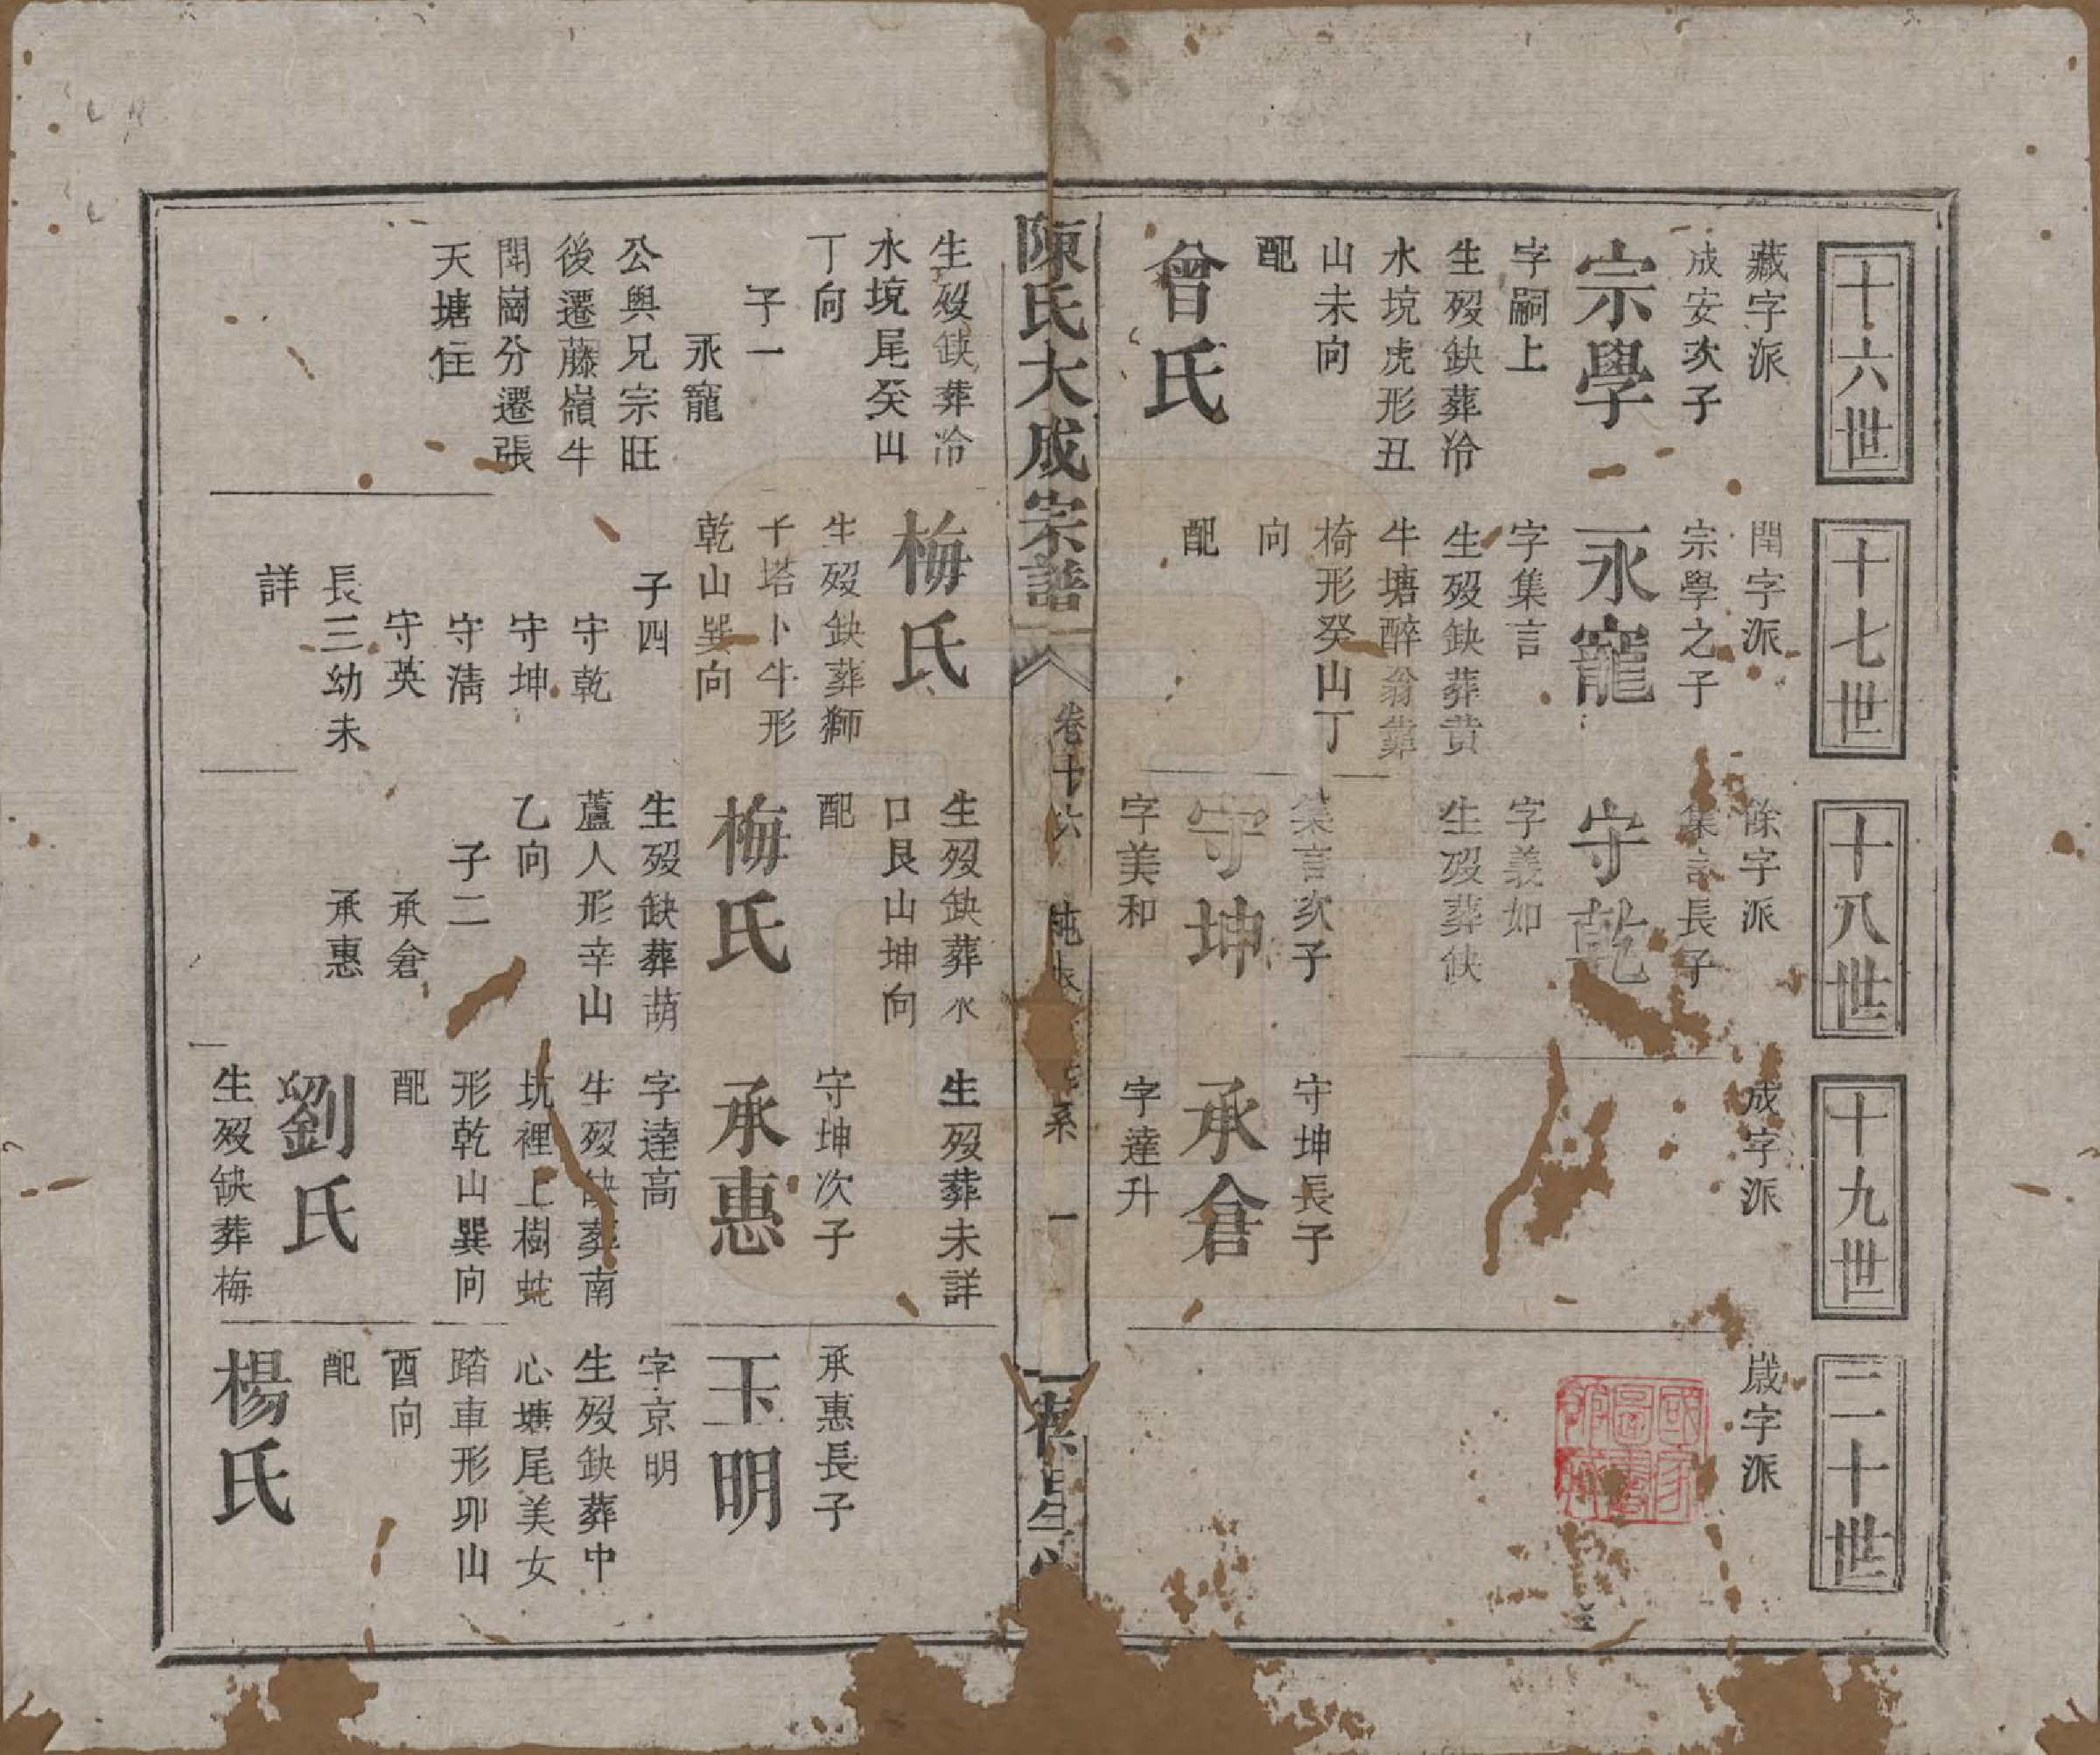 十六世
藏字派
成安次子
宗學
字嗣上
生歿缺葬冷
水境虎形丑
山未向
配
曾氏
生歿缺葬冷
水境尾癸山
丁向
子一
永寵
公與兄宗旺
後遷藤嶺牛
閏崗分遷張
天塘住
十七世
閏字派
宗學之子
永寵
字集言
生歿缺葬黄
牛塘醉翁靠
椅形癸山丁
向
配
梅氏
生歿缺葬獅
子塔卜牛形
乾山巽向
子四
守乾
守坤
守清
守英
長三幼未
詳
十八世
餘字派
集言長子
守乾
字義如
生歿葬缺
集言次子
守坤
字美和
生歿缺葬水
口艮山坤向
配
梅氏
生歿缺葬葫
蘆人形辛山
乙向
子二
承倉
承惠
十九世
成字派
守坤長子
承倉
字達升
生歿葬未詳
守坤次子
承惠
字達高
生歿缺葬南
坑裡上樹蛇
形乾山巽向
配
劉氏
生歿缺葬梅
二十世
歲字派
承惠長子
玉明
字京明
生歿缺葬中
心塘尾美女
踏車形卯山
酉向
配
楊氏
陳氏大成宗譜
卷十六
系
一